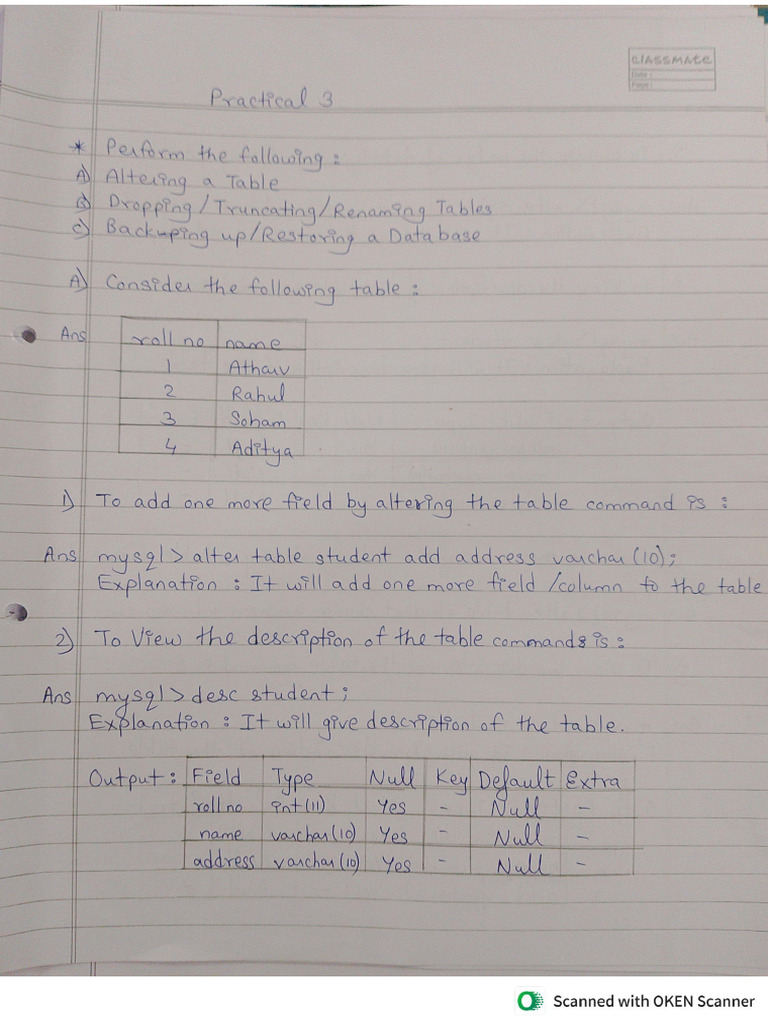 classmate
Date :
Page :
Practical 3
* Perform the following :
A) Altering a Table
B) Dropping/Truncating/Renaming Tables
C) Backuping up/Restoring a Database
A) Consider the following table :
Ans
roll no name
1 Atharv
2 Rahul
3 Soham
4 Aditya
1) To add one more field by altering the table command is :
Ans mysql> alter table student add address varchar(10);
Explanation : It will add one more field /column to the table
2) To View the description of the table commands is :
Ans mysql> desc student ;
Explanation : It will give description of the table.
Output : Field Type Null Key Default Extra
roll no int(11) Yes - Null -
name varchar(10) Yes - Null -
address varchar(10) Yes - Null -
Scanned with OKEN Scanner